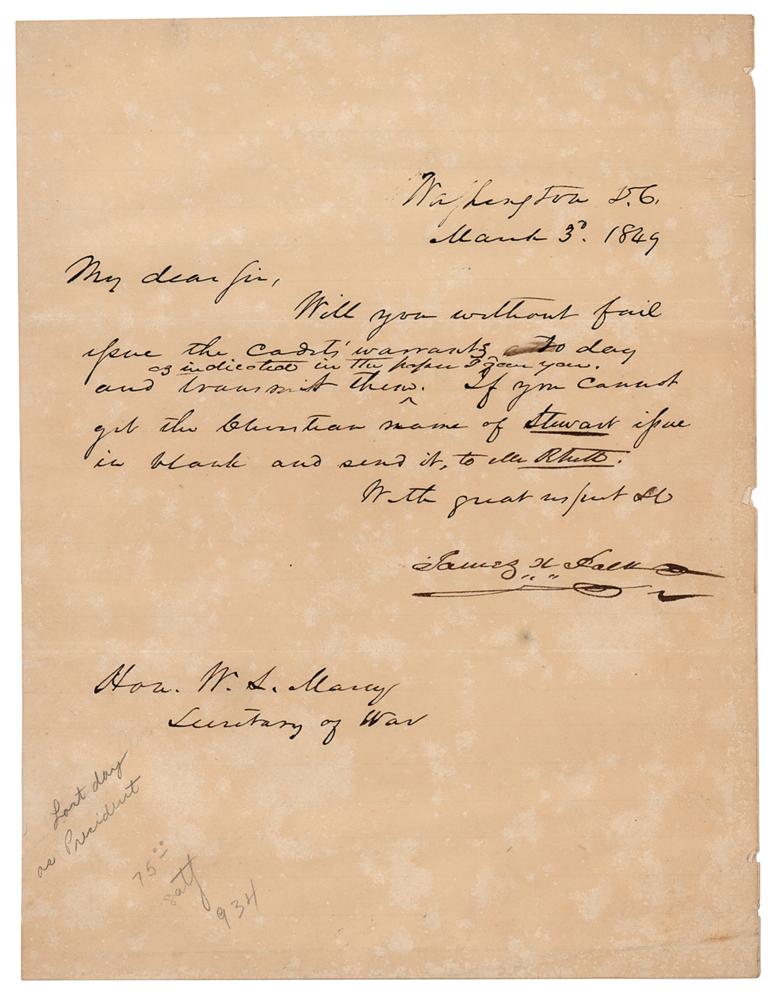 Washington D.C.
March 3d. 1849
My dear Sir,
Will you without fail
issue the cadets' warrants to day
as indicated in the paper I gave you.
and transmit them. ^ If you cannot
get the Christian name of Stewart issue
in blank and send it, to Mr Rhett.
With great respect &c
James K Polk
Hon. W. L. Marcy
Secretary of War
Last day
as President
75.00
934